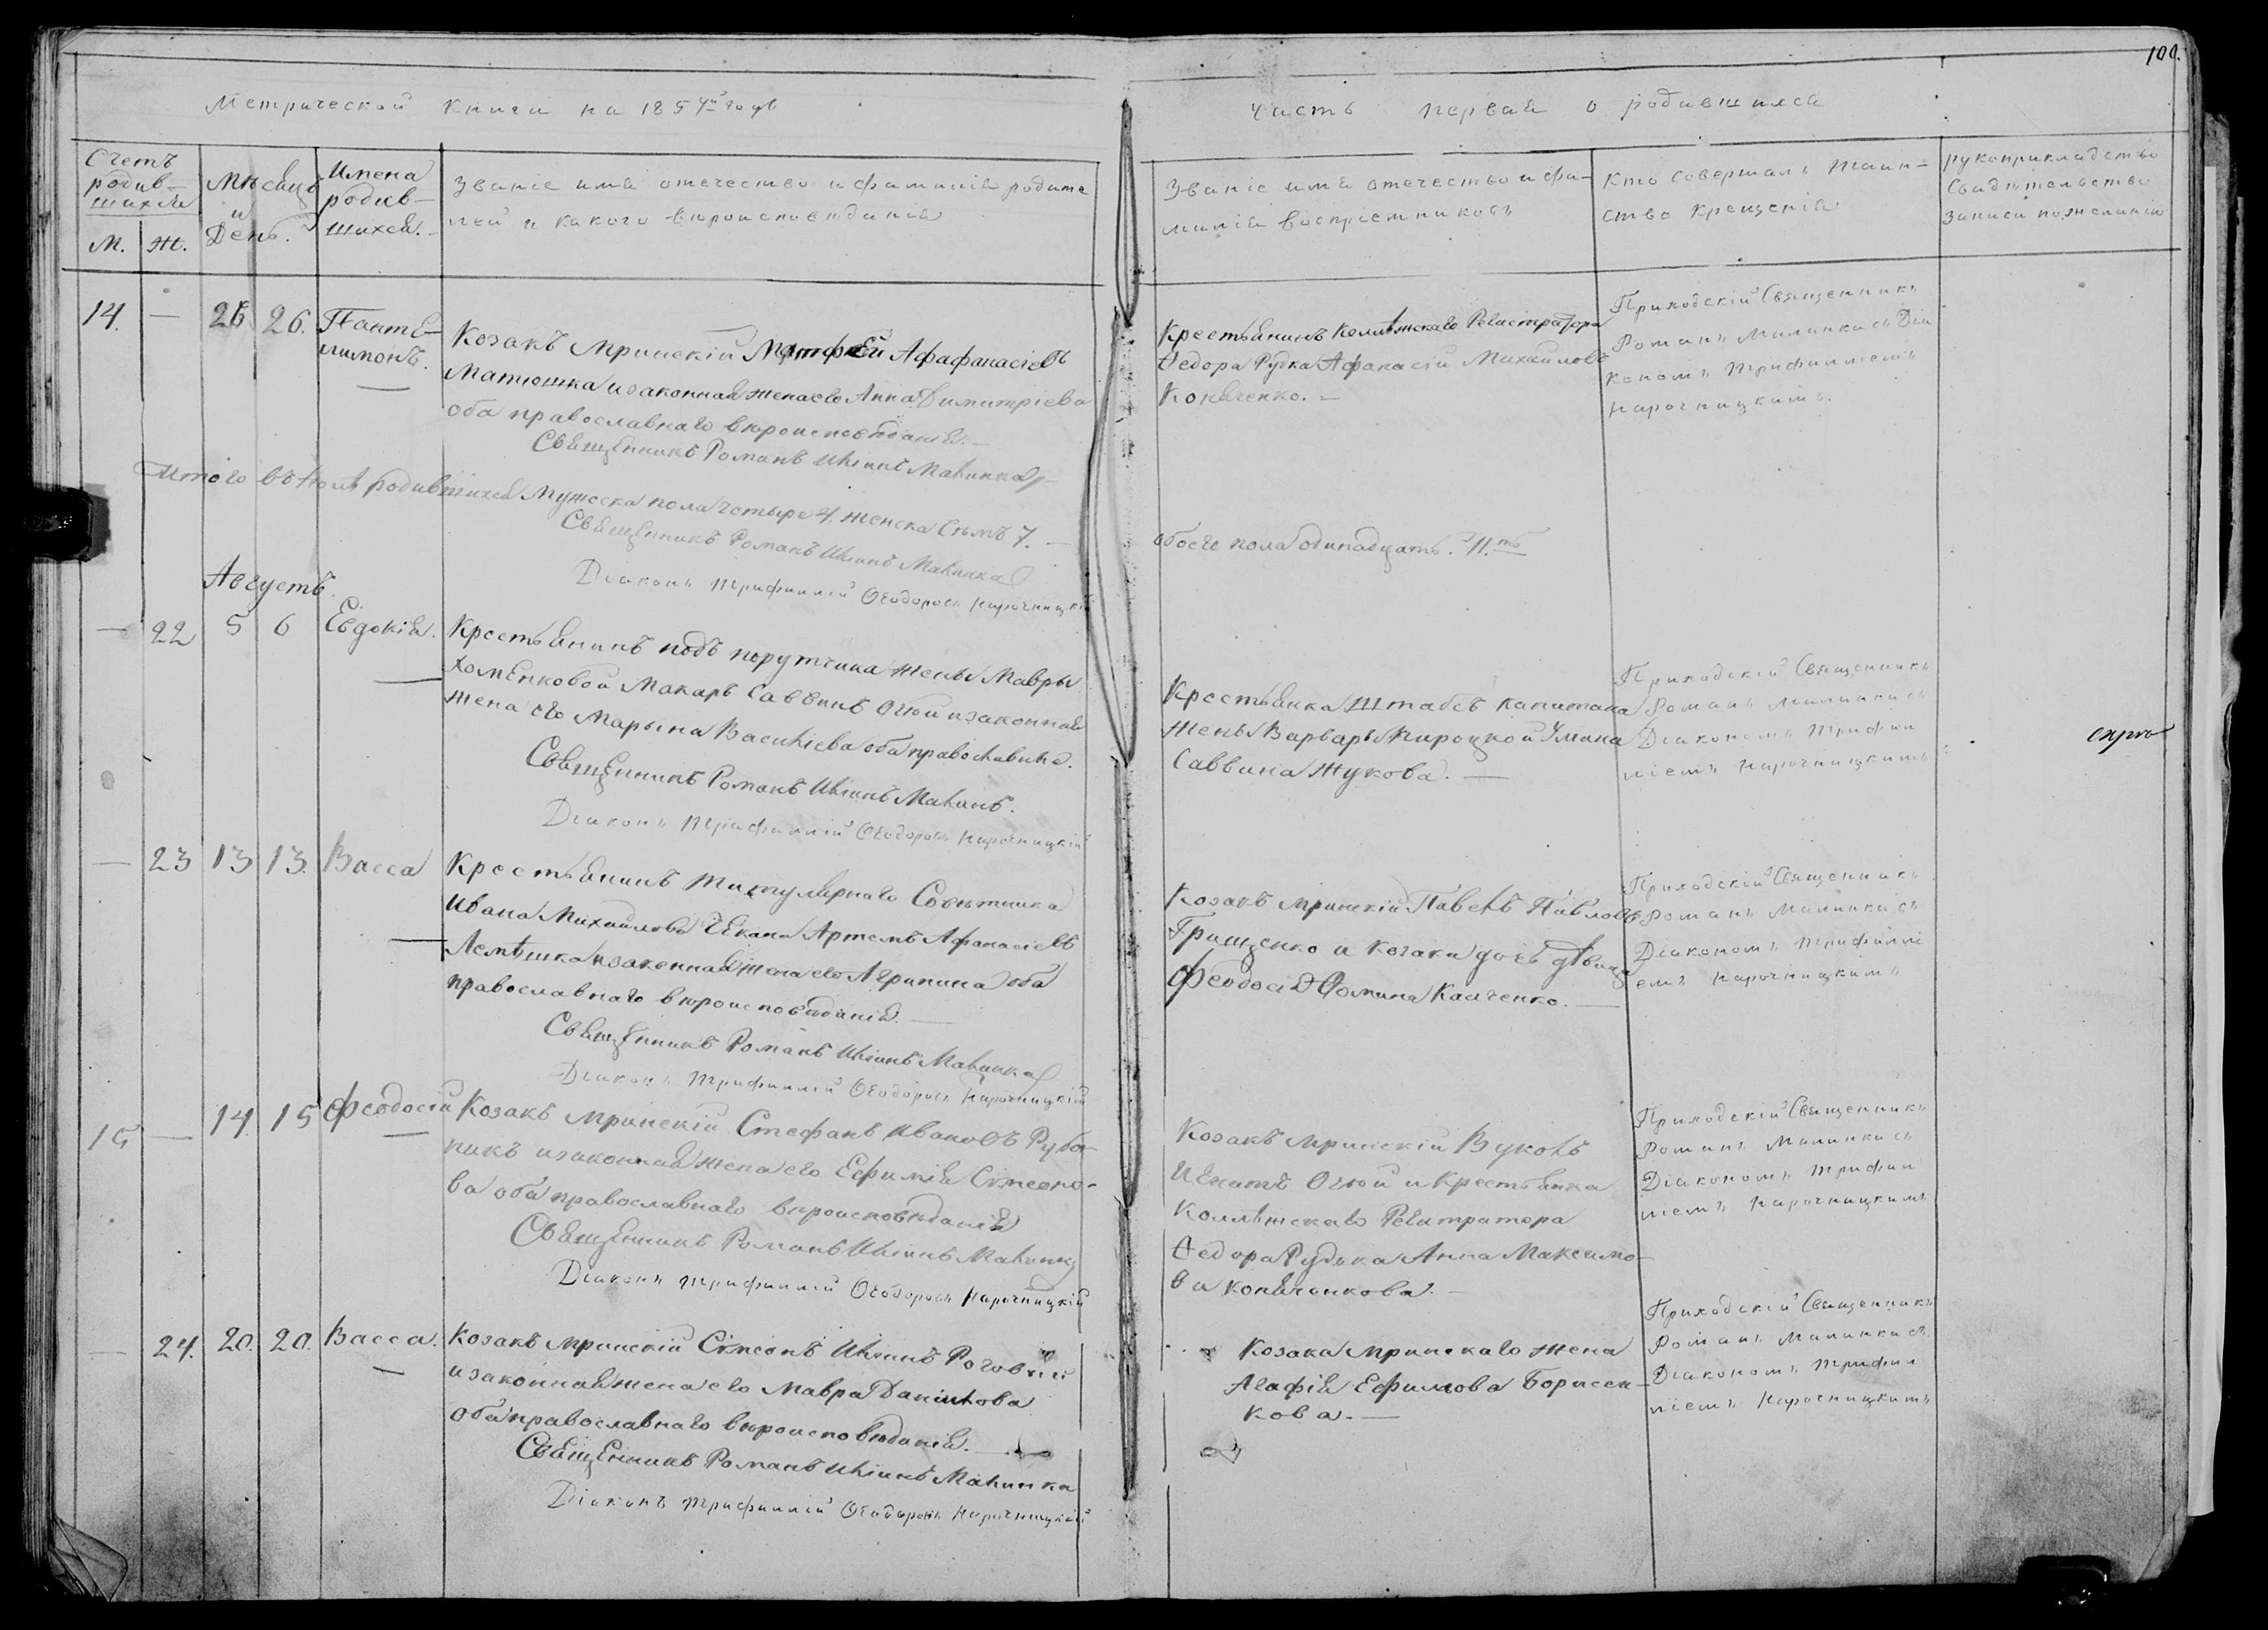 100.
Метрической книги на 1857й годъ
Часть первая о родившихся
Счетъ родив-шихся
М. Ж.
Мѣсяцъ и День.
Имена родив-шихся.
Званіе имя отечество и фамилія родите
лей и какого вѣроисповѣданія
Званіе имя отечество и фа-
милія воспріемниковъ
Кто совершалъ таин-
ство крещенія
рукоприкладство
Свидѣтельство
записи по желанію
14. — 26 26. Панте-
лимонъ.
Козакъ Мринскій Матфей Афафанасіевъ
Матюшка и законная жена его Анна Димитріева
оба православнаго вѣроисповѣданія. —
Священникъ Романъ Иліинъ Малинка
Крестьянинъ Коллѣжскаго Регистратора
Ѳедора Рудка Афанасій Михайловъ
Коняченко. —
Приходскій Священникъ
Романъ Малинка съ Діа
кономъ Трифилліемъ
Нарочницкимъ.
Итого въ Іюлѣ родившихся Мужеска пола четыре 4. женска Семь 7. —
обоего пола одинадцать. 11.ть
Священникъ Романъ Иліинъ Малинка
Діаконъ Трифиллій Ѳеодоровъ Нарочницкій
Августъ.
— 22 5 6 Евдокія.
Крестьянинъ подъ порутчика жены Мавры
Хоменковой Макаръ Саввинъ Огюй и законная
жена его Марына Василіева оба православные.
Священникъ Романъ Иліинъ Малинъ.
Діаконъ Трифиллій Ѳеодоровъ Нарочницкій
Крестьянка Штабсъ капитана
жены Варвары Пироцкой Ульяна
Саввина Жукова. —
Приходскій Священникъ
Романъ Малинка съ
Діакономъ Трифил
ліемъ Нарочницкимъ
— 23 13 13. Васса
Крестьянинъ Титулярнаго Совѣтника
Ивана Михайлова Чекана Артемъ Афанасіевъ
Лемѣшка и законная жена его Агрипина оба
православнаго вѣроисповѣданія. —
Священникъ Романъ Иліинъ Малинка
Діаконъ Трифиллій Ѳеодоровъ Нарочницкій
Козакъ Мринскій Павелъ Павловъ
Грищенко и козака дочь дѣвица
Феодосія Фомина Калченко. —
Приходскій Священникъ
Романъ Малинка съ
Діакономъ Трифиллі
емъ Нарочницкимъ
15 — 14 15 Феодосій
Козакъ Мринскій Стефанъ Ивановъ Руба-
никъ и законная жена его Ефимія Сѵмеоно-
ва оба православнаго вѣроисповѣданія
Священникъ Романъ Иліинъ Малинка
Діаконъ Трифиллій Ѳеодоровъ Нарочницкій
Козакъ Мринскій Вуколъ
Игнатъ Огюй и Крестьянка
Коллѣжскаго Регитратора
Ѳедора Рудька Анна Максимо-
ва Коняченкова. —
Приходскій Священникъ
Романъ Малинка съ
Діакономъ Трифил
ліемъ Нарочницкимъ
— 24. 20. 20. Васса.
Козакъ Мринскій Сѵмеонъ Иліинъ Роговый
и законная жена его Мавра Даніилова
оба православнаго вѣроисповѣданія. —
Священникъ Романъ Иліинъ Малинка
Діаконъ Трифиллій Ѳеодоровъ Нарочницкій
Козака Мринскаго жена
Агафія Ефимова Борисен-
кова. —
Приходскій Священникъ
Романъ Малинка съ
Діакономъ Трифил
ліемъ Нарочницкимъ